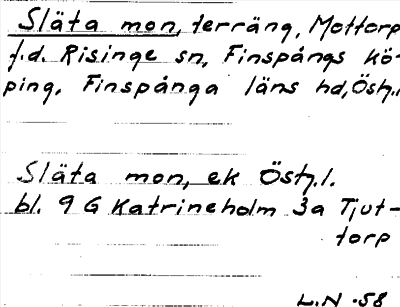 Släta mon, terräng, Mottorp
f.d. Risinge sn, Finspångs kö-
ping, Finspånga läns hd, Östg.l
Släta mon, ek Östg.l.
bl. 9 G Katrineholm 3a Tjut-
torp
L.N -58